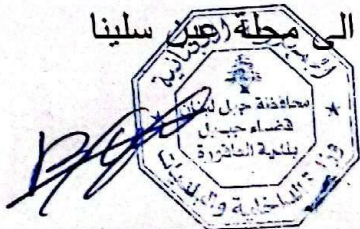 الى محلة عين سلينا
الجمهورية اللبنانية
محافظة جبل لبنان
قضاء جبيل
بلدية العاقورة
وزارة الداخلية والبلديات